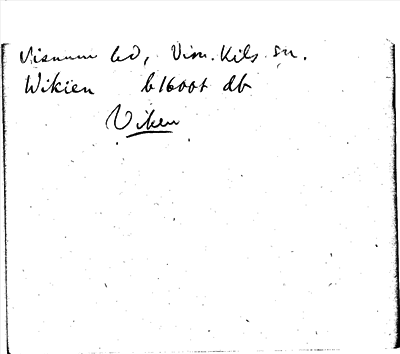 Visnum hd, Visn. Kils sn.
Wikien b1600t db
Viken